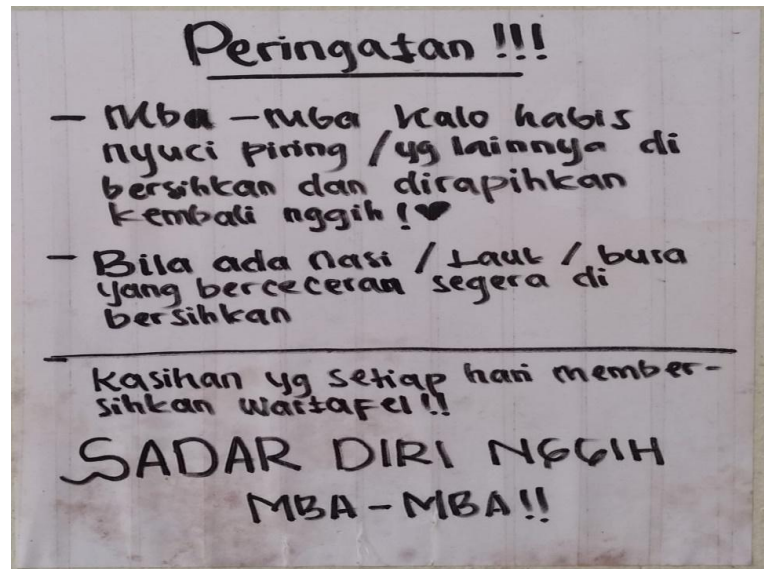 Peringatan !!!
- Mba - mba kalo habis
nyuci piring / yg lainnya di
bersihkan dan dirapihkan
kembali nggih ! ♥
- Bila ada nasi / lauk / busa
yang berceceran segera di
bersihkan
Kasihan yg setiap hari member-
sihkan wastafel !!
SADAR DIRI NGGIH
MBA - MBA !!